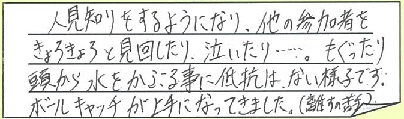 人見知りをするようになり、他の参加者を
きょろきょろと見回したり、泣いたり……。もぐったり
頭から水をかぶる事に低抗はない様子です。
ボールキャッチが上手になってきました。(離すの苦手)